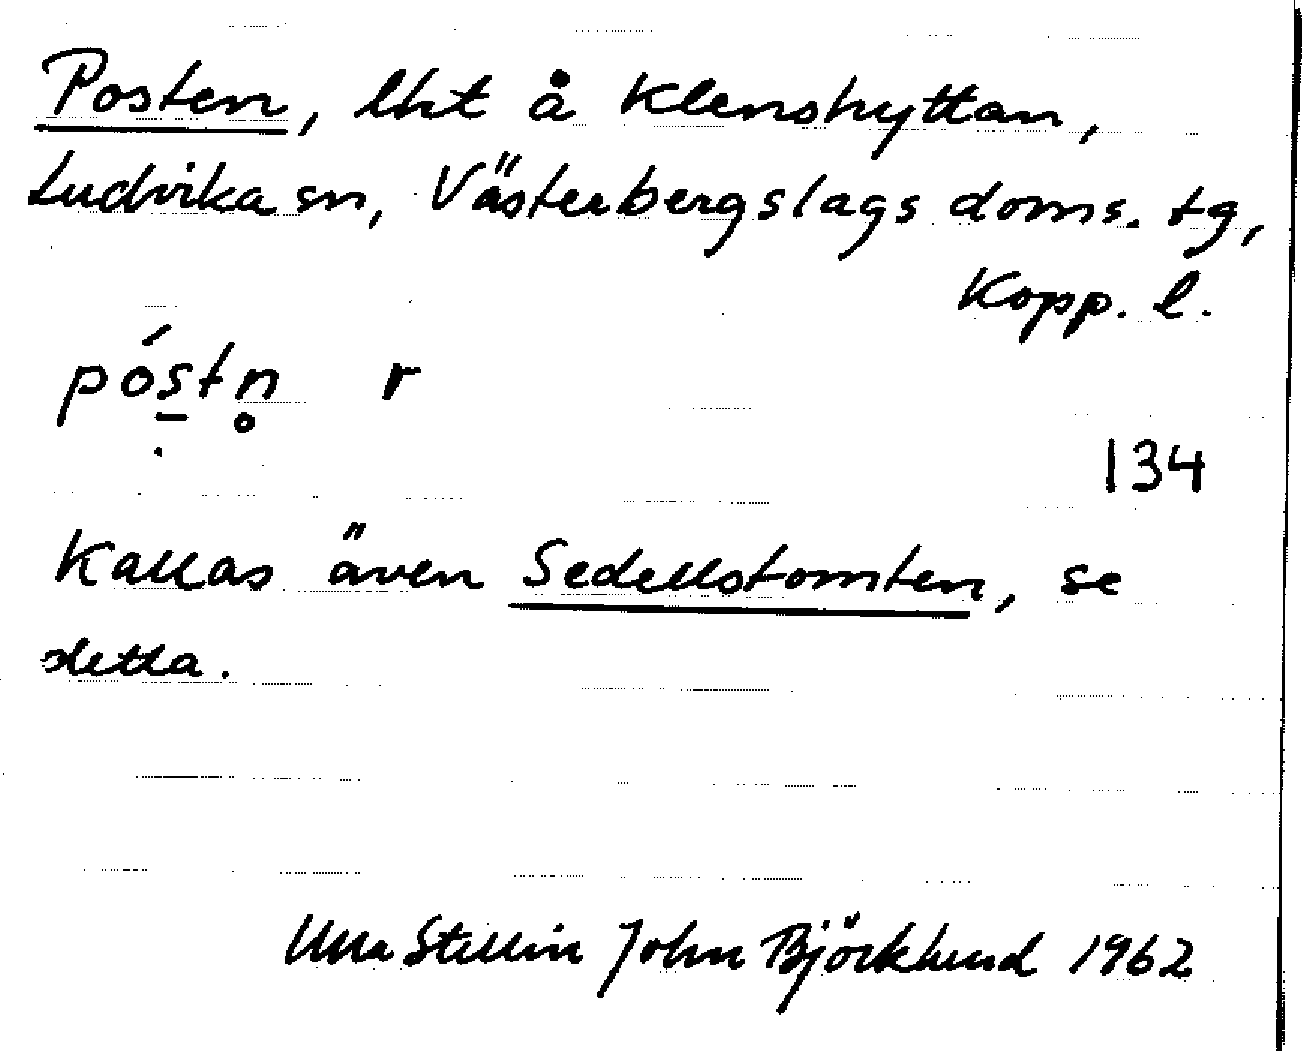 Posten, lht å Klenshyttan,
Ludvika sn, Västerbergslags doms. tg,
Kopp. l.
póstn̥ r
134
Kallas även Sedellstomten, se
detta.
Ulla Stellin John Björklund 1962